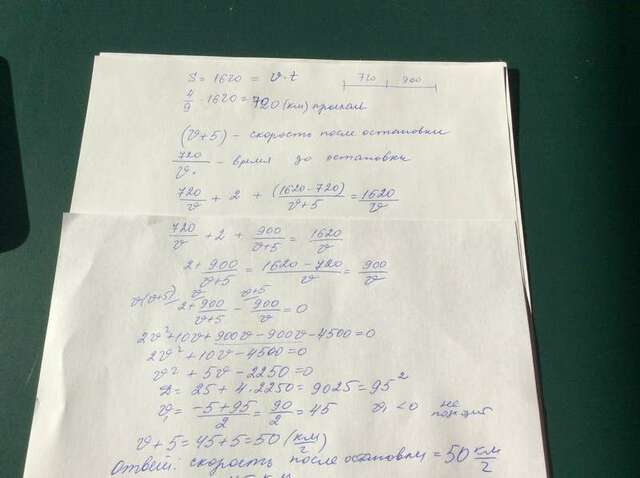 S = 1620 = v·t
720 900
4/9 · 1620 = 720 (км) проехал
(v+5) - скорость после остановки
720/v - время до остановки
720/v + 2 + (1620-720)/(v+5) = 1620/v
720/v + 2 + 900/(v+5) = 1620/v
2 + 900/(v+5) = (1620-720)/v = 900/v
v(v+5)/ v v+5
2 + 900/(v+5) - 900/v = 0
2v²+10v+900v-900v-4500=0
2v²+10v-4500=0
v²+5v-2250=0
D = 25+4·2250=9025=95²
v₁ = (-5+95)/2 = 90/2 = 45 v₁<0 не подходит
v+5=45+5=50 (км/г)
Ответ: скорость после остановки = 50 км/г